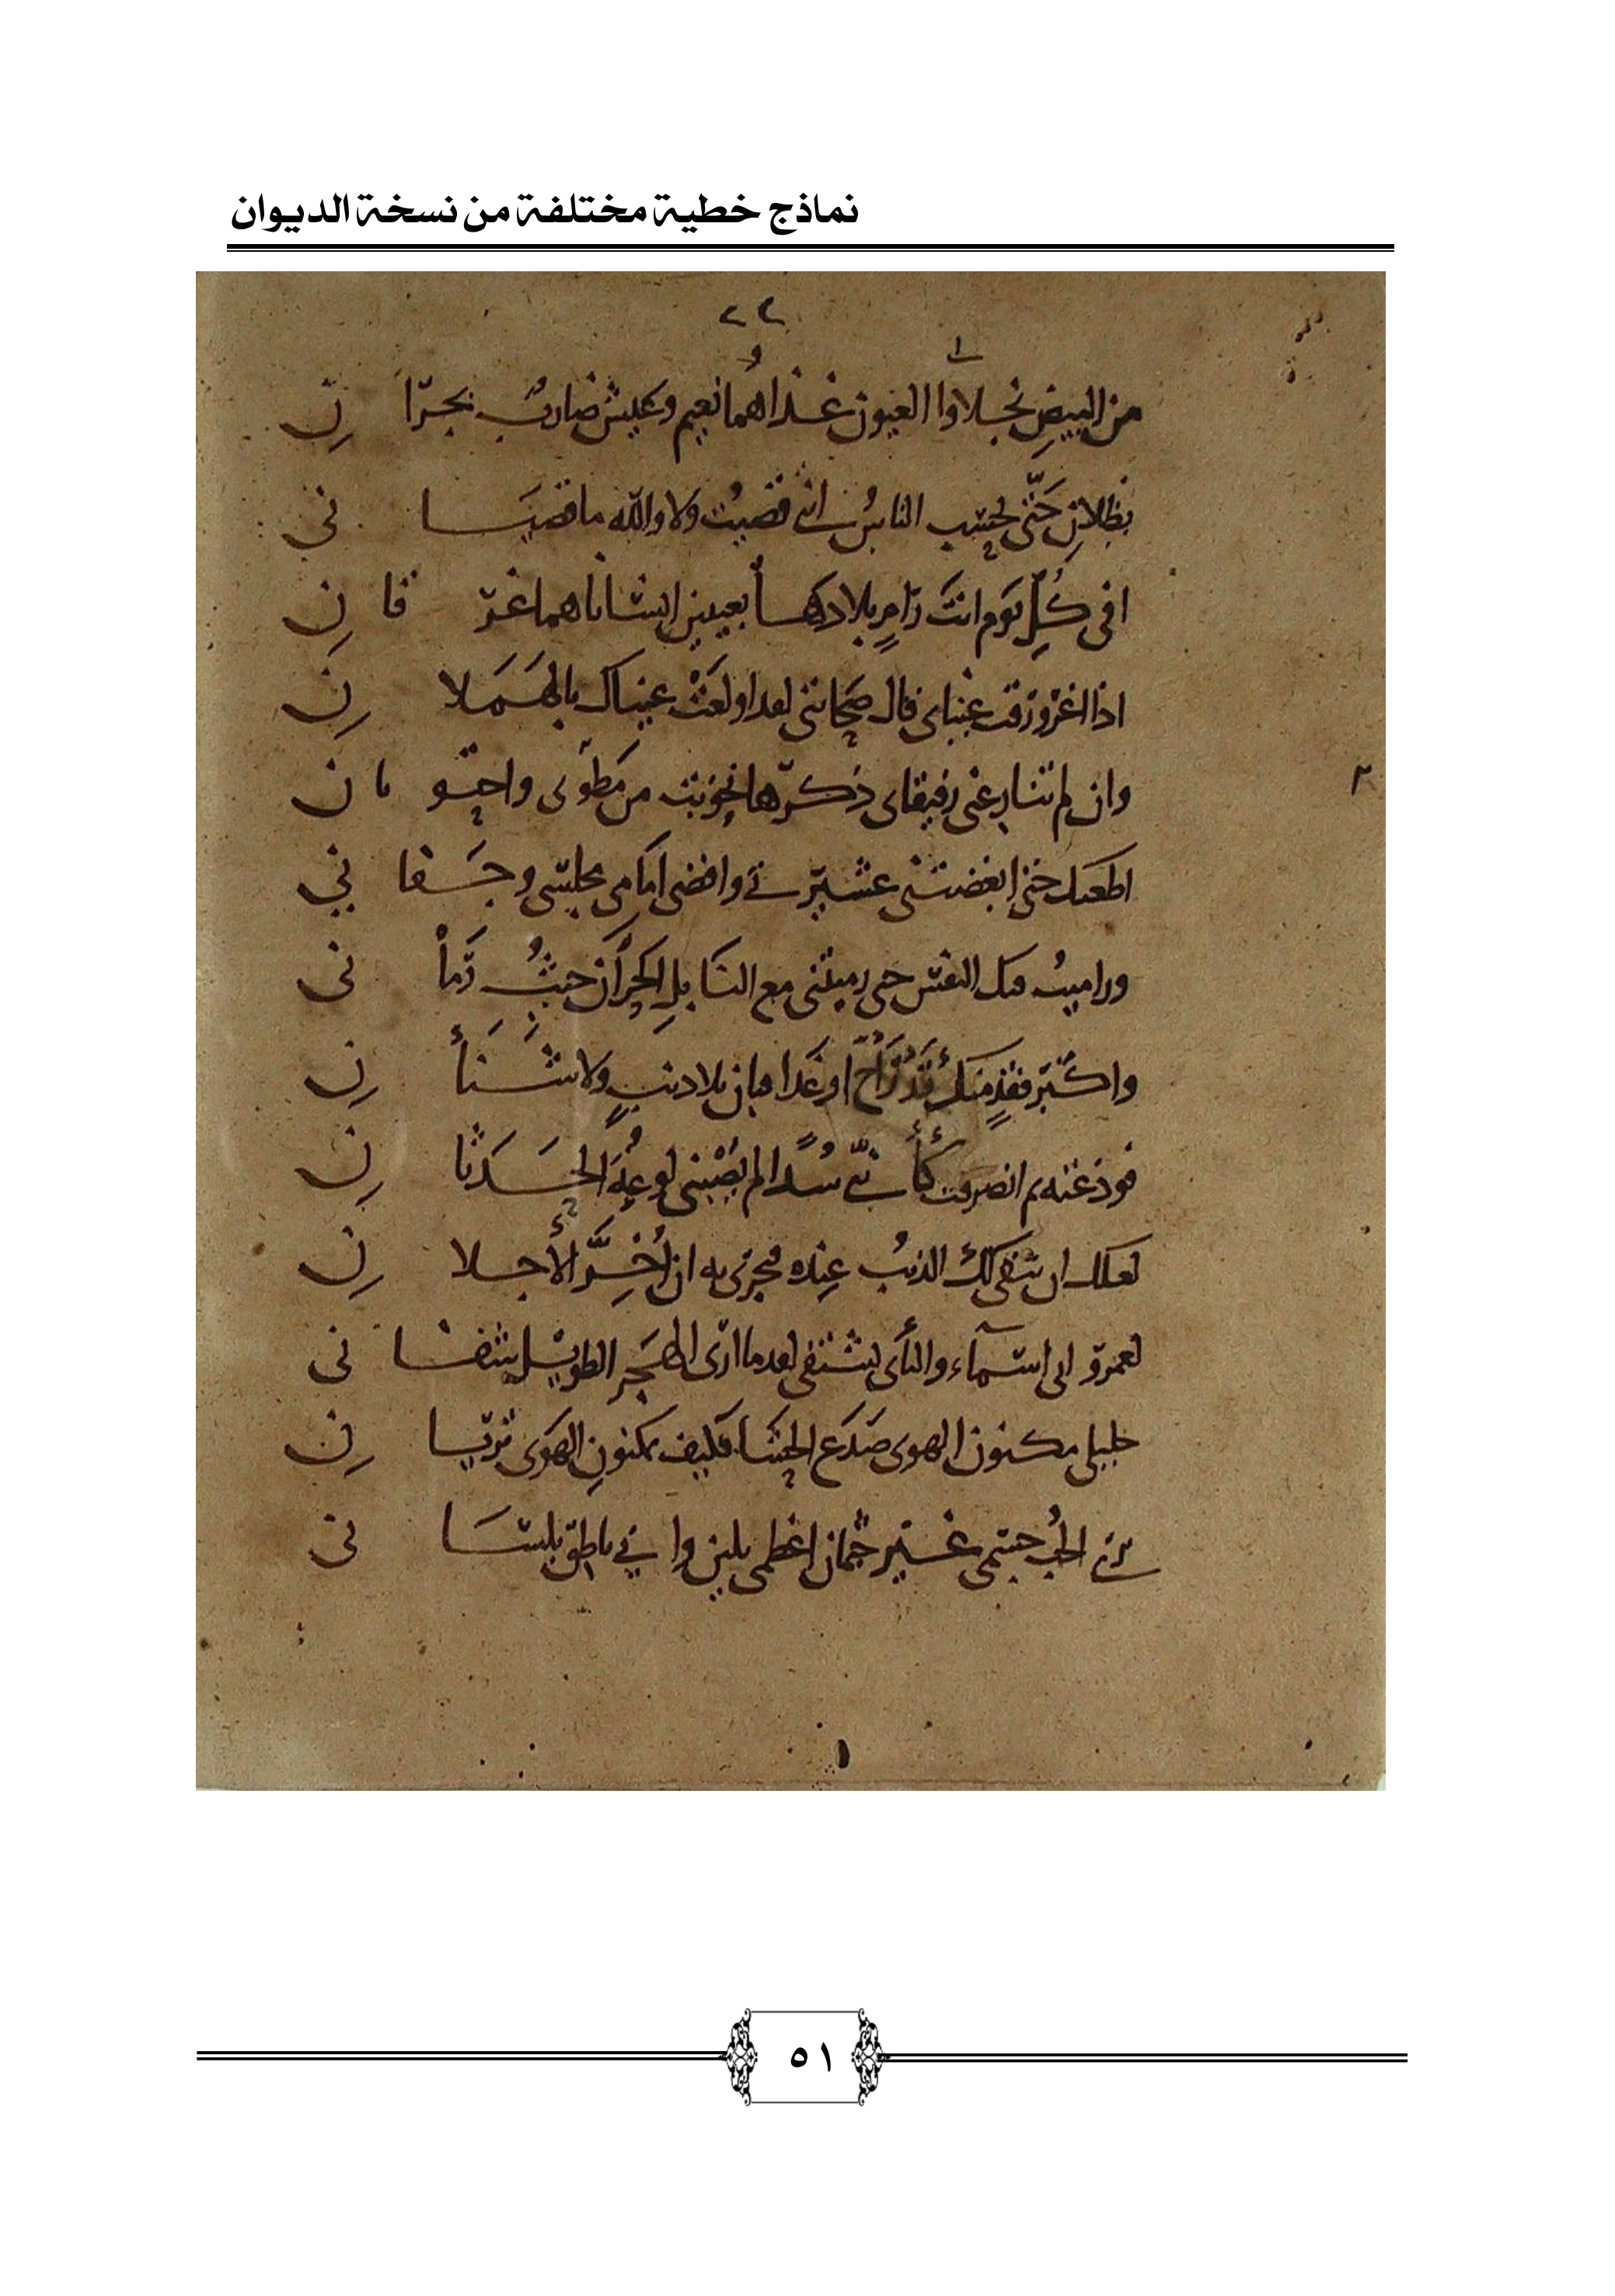 نماذج خطية مختلفة من نسخة الديوان
٢٢
من البيض نجلاوا العيون غذاهما نعيم وعيش ضارب بجرا ن
حتى يحسب الناس انني قضيت ولا والله ما قضيـــا ني
افي كل يوم انت رام بلادها بعينين انسانا هما غر قا ن
اذا اغرورقت عيناي قال صحابتي لعد اولعت عيناك بالهمـلا ن
٣
وان لم تنازعني رفيقاي ذكرها من مطوي واحتو ما ن
حتى ابغضتني عشيرتي واقضى امامي مجلسي وجـفا ني
وراميت فيك النفس حتى رميتني مع النابل الحران حيث رما ني
واكثر فقد منك او غدا بلا ذنب ولا شـنأ ن
ثم انصرفت كأنني سدا لم يصبني لوعة الحـدثا ن
لعلك ان الذنب عنده به ان أخر الأجـلا ن
اسماء والنأي لعدما ارى الهجر الطويل شفـا ني
خليلي مكنون الهوى صدع الحشا فكيف بمكنون الهوى تريـا ن
برى الحب جسمي غير جثمان اعظمي بلين واني ناطق بلسـا ني
٥١